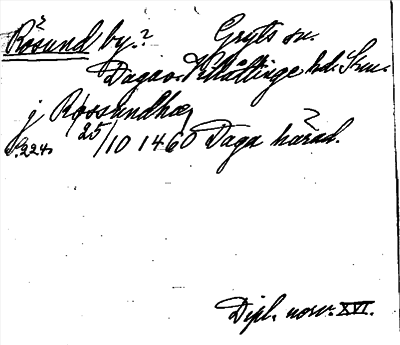 Rösund by.? Gryts sn.
Daga o. Villåttinge hd. Srm.
j Røssundhæ
S. 224. 25/10 1460 Daga härad.
Dipl. norv. XVI.